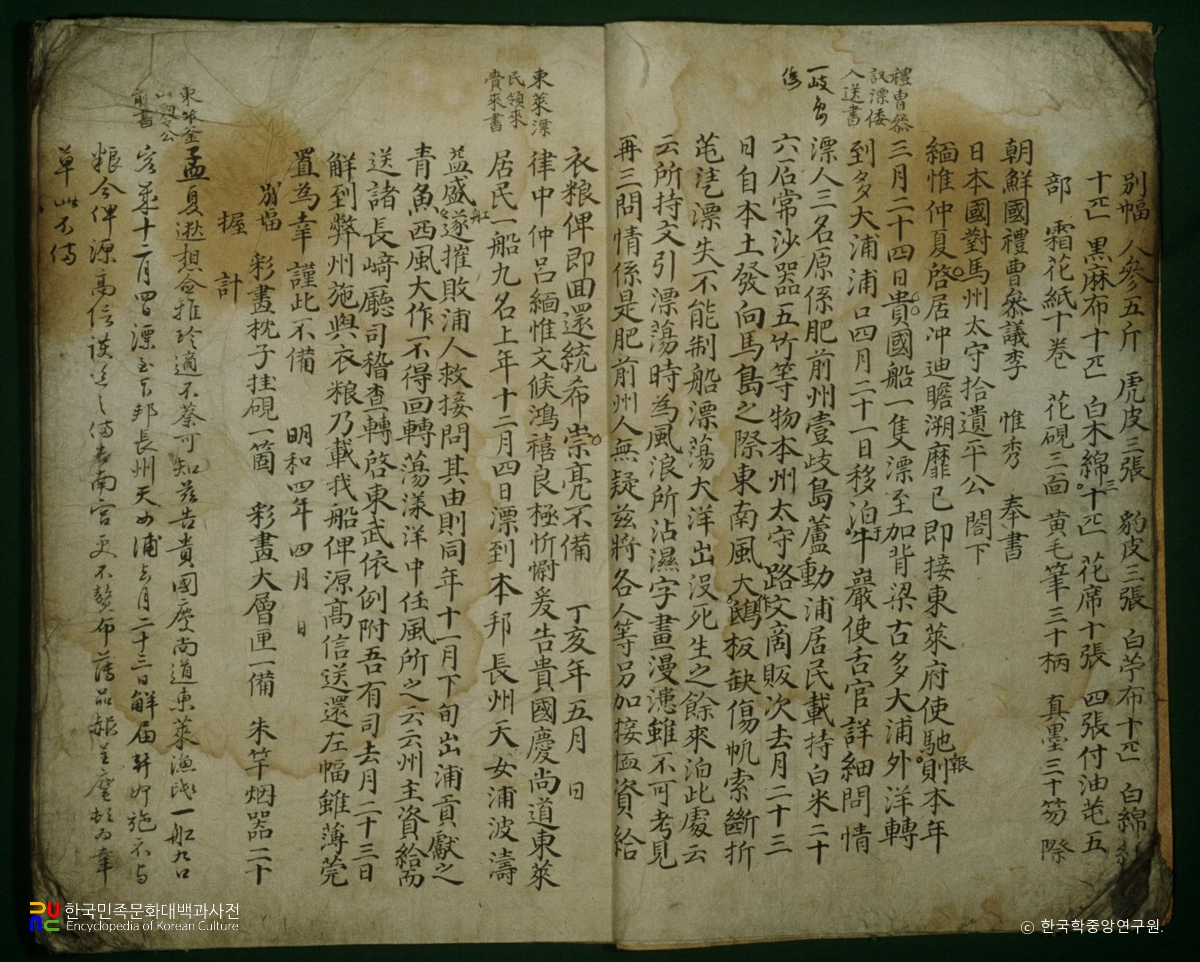 別幅 人參五斤 虎皮三張 豹皮三張 白苧布十疋 白綿紬
十疋 黑麻布十疋 白木綿十疋 花席十張 四張付油芚五
部 霜花紙十卷 花硯三面 黃毛筆三十柄 真墨三十笏 際
朝鮮國禮曹叅議李 惟秀 奉書
日本國對馬州太守拾遺平公 閤下
緬惟仲夏啓居冲迪瞻溯靡已即接東萊府使馳報則本年
禮曹叅
議漂倭
人送書
三月二十四日貴國船一隻漂至加背梁古多大浦外洋轉
到多大浦浦口四月二十一日移泊于牛巖使舌官詳細問情
一岐島
漂人三名原係肥前州壹岐島蘆動浦居民載持白米二十
六石常沙器五竹等物本州太守路文商販次去月二十三
日自本土發向馬島之際東南風大作鴟板缺傷帆索斷折
芚漂失不能制船漂蕩大洋出沒死生之餘來泊此處云
云所持文引漂蕩時為風浪所沾濕字畫漫漶雖不可考見
再三問情係是肥前州人無疑茲將各人等另加接恤資給
衣粮俾即回還統希崇亮不備 丁亥年五月 日
東萊漂
民領來
賚來書
律中仲呂緬惟文候鴻禧良極忻慰爰告貴國慶尚道東萊
居民一船九名上年十二月四日漂到本邦長州天女浦波濤
益盛船遂摧敗浦人救接問其由則同年十一月下旬出浦貢獻之
青魚西風大作不得回轉蕩漾洋中任風所之云云州主資給而
送諸長崎廳司稽查轉啓東武依例附吾有司去月二十三日
解到弊州施與衣粮乃載我船俾源高信送還左幅雖薄莞
置為幸 謹此不備 明和四年 四月 日
別幅 彩畫枕子挂硯一箇 彩畫大層匣一備 朱竿烟器二十
握 計
東萊釜
山兩令公
前書
孟夏遐想令推珍適不蔡可知茲告貴國慶尚道東萊漁氓一船九口
客年十二月四日漂至下邦長州天女浦去月二十三日解届弊州施衣与
粮今俾源高信護送之備者南宮更不贅布薄品
草此不備
한국민족문화대백과사전
Encyclopedia of Korean Culture
ⓒ 한국학중앙연구원.